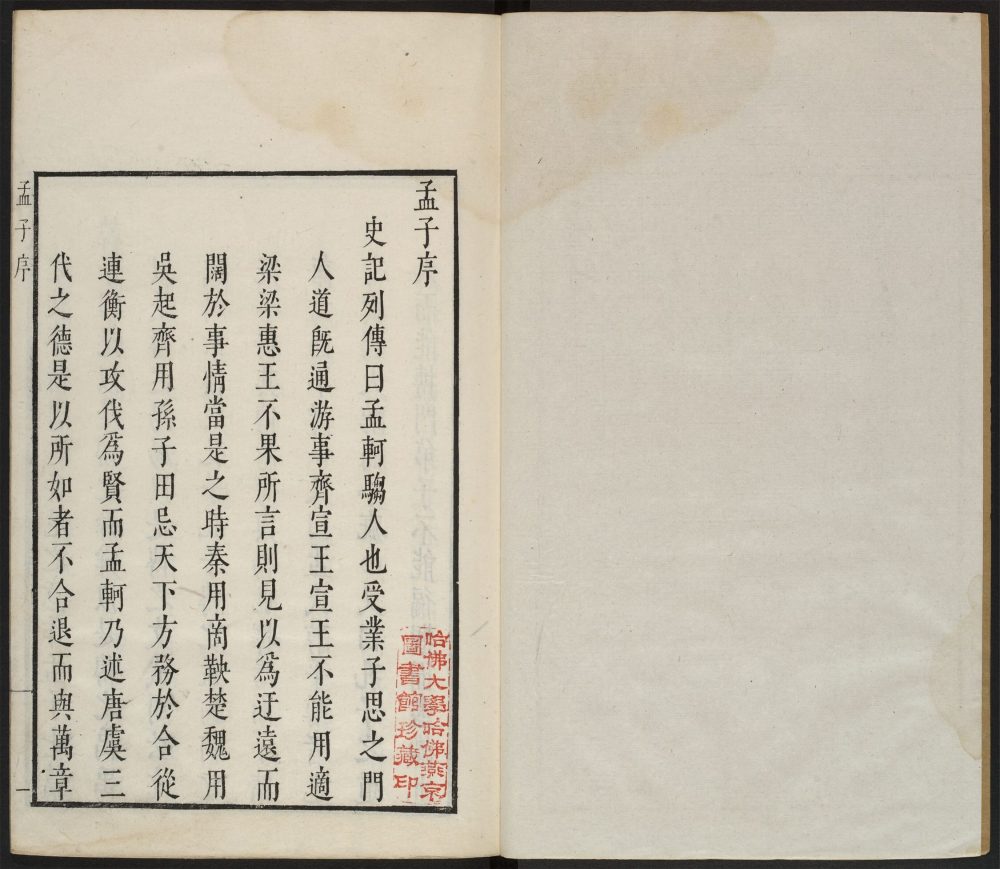 孟子序
史記列傳曰孟軻騶人也受業子思之門
人道旣通游事齊宣王宣王不能用適
梁梁惠王不果所言則見以爲迂遠而
闊於事情當是之時秦用商鞅楚魏用
吳起齊用孫子田忌天下方務於合從
連衡以攻伐爲賢而孟軻乃述唐虞三
代之德是以所如者不合退而與萬章
孟子序
一
哈佛大學哈佛燕京
圖書館珍藏印